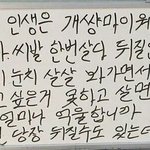 인생은 개상마이웨
씨발 한번살다 뒤질인
눈치 살살 봐가면서
고싶은거 못하고 살면
얼마나 억울합니까
당장 뒤질수도 있는데